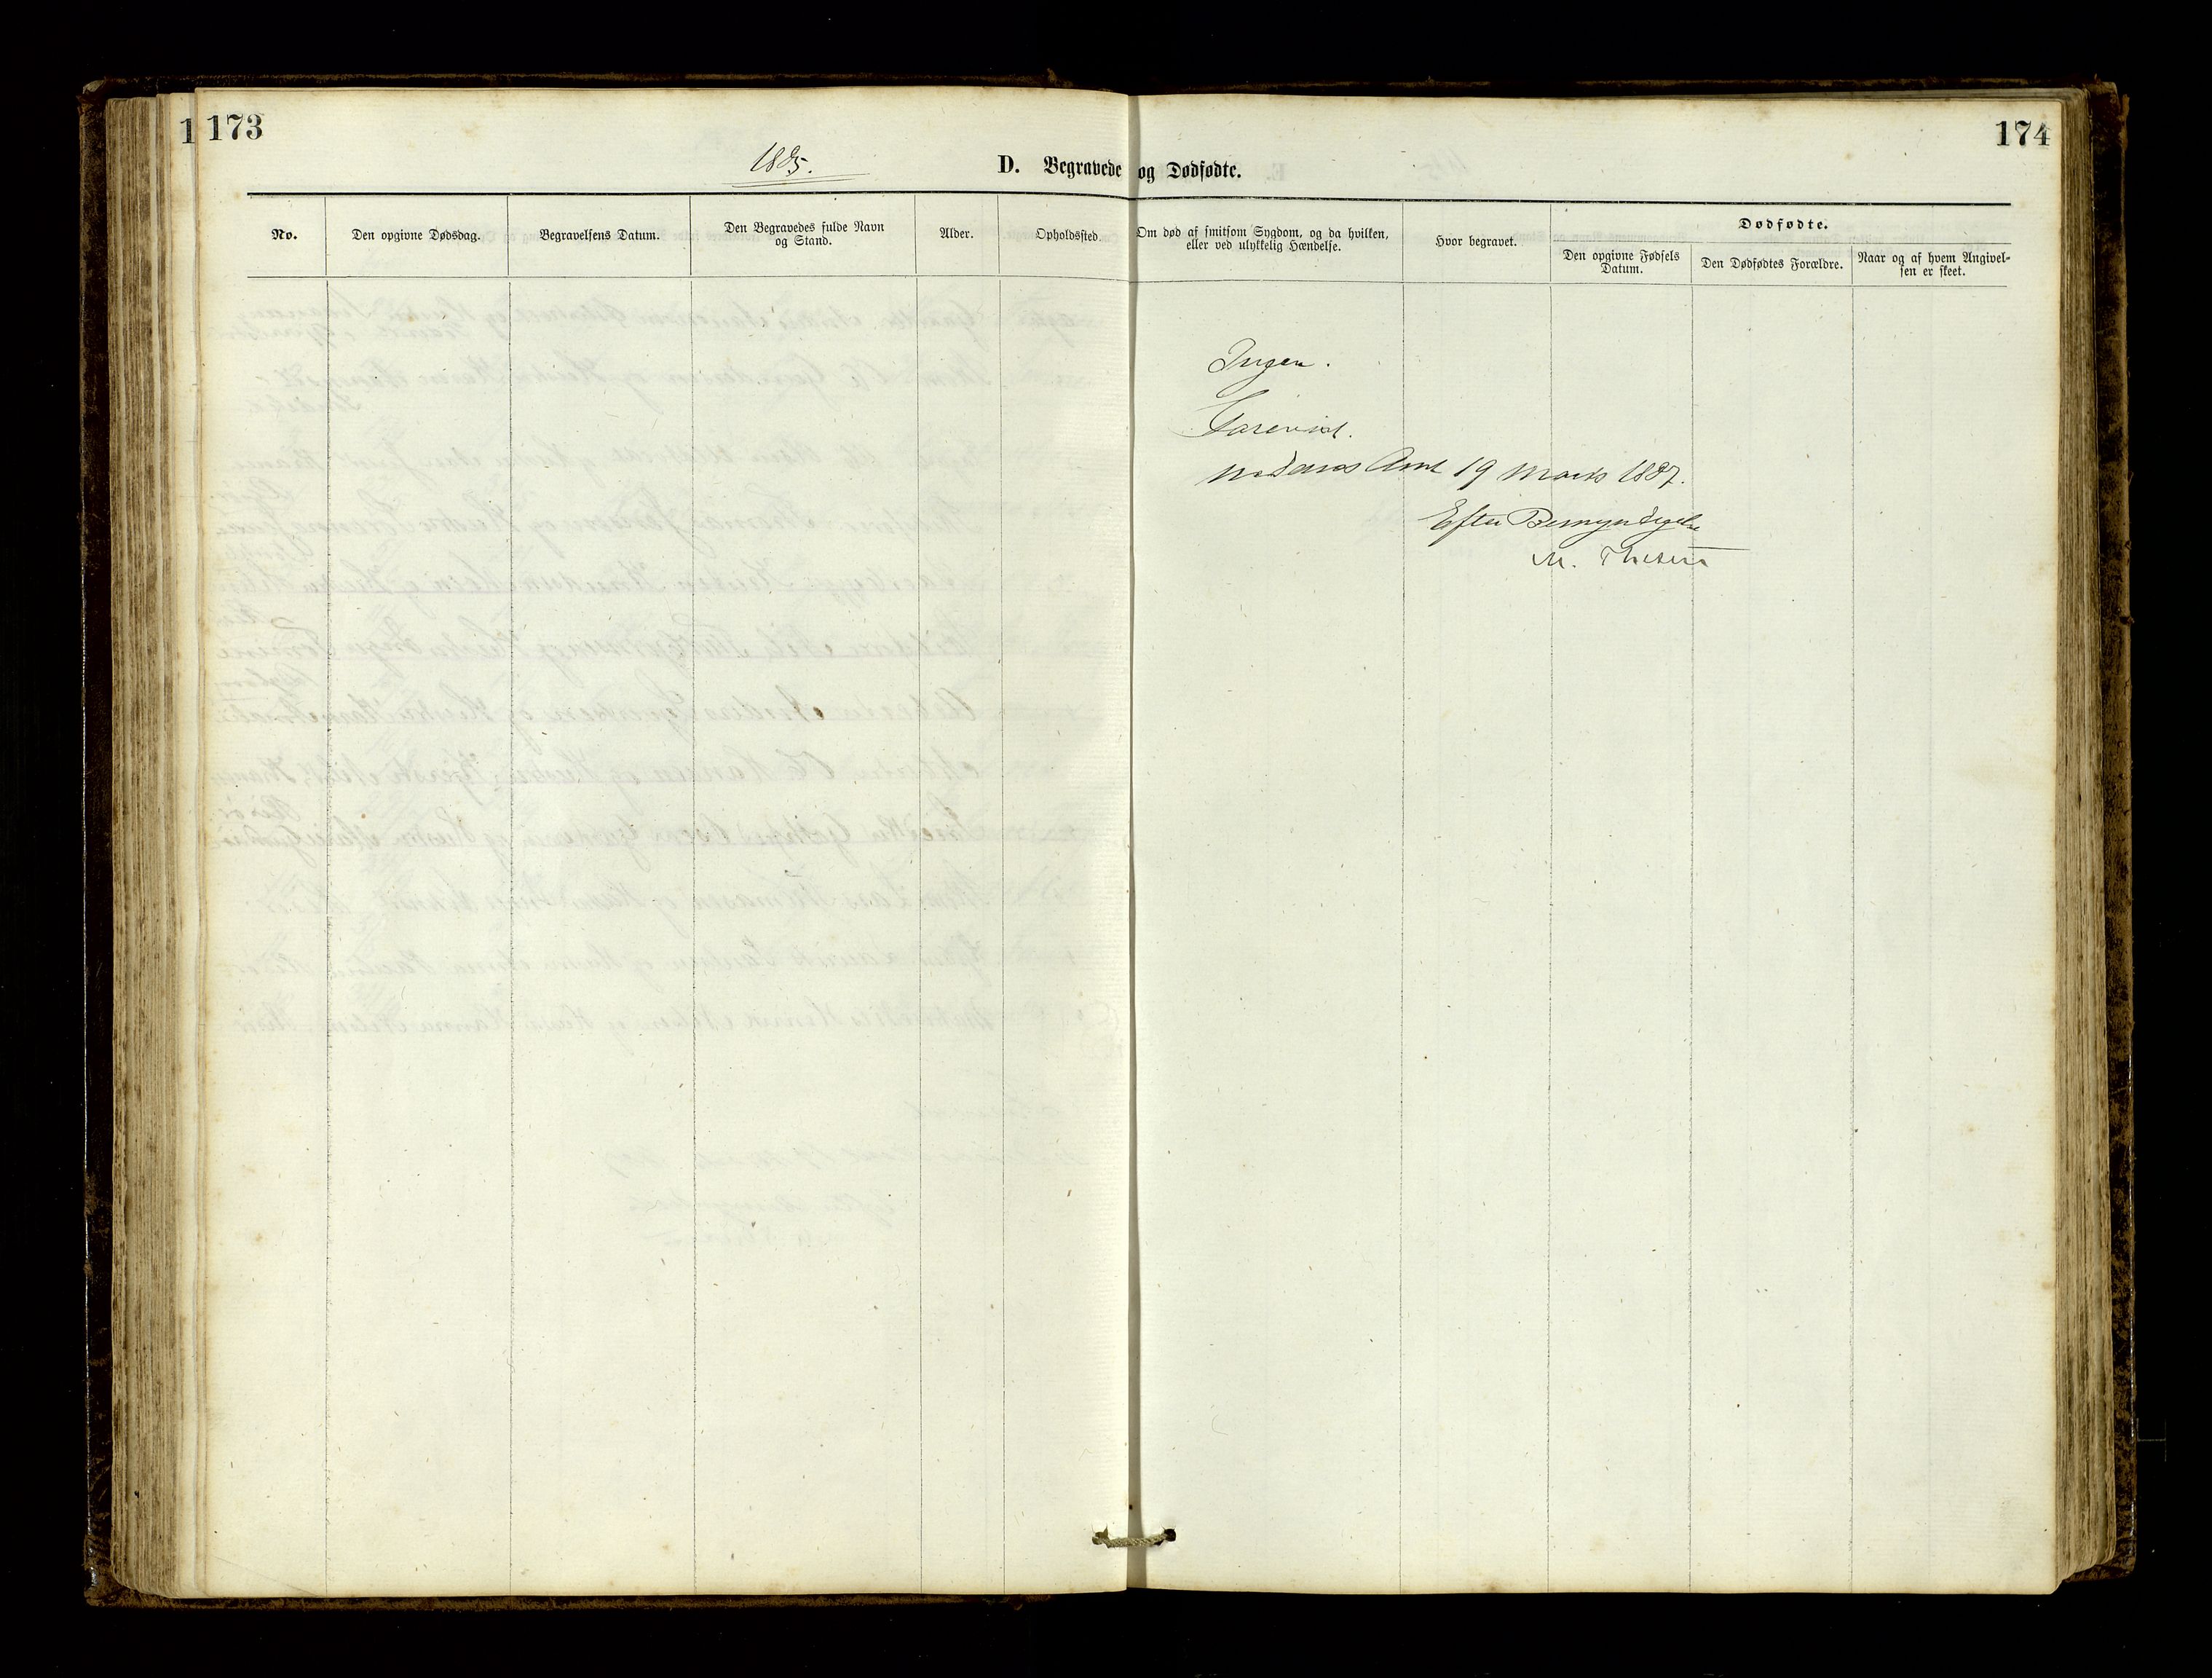 173
174
1885.
D. Begravede og Dødfødte.
No.
Den opgivne Dødsdag.
Begravelsens Datum.
Den Begravedes fulde Navn
og Stand.
Alder.
Opholdssted.
Om død af smitsom Sygdom, og da hvilken,
eller ved ulykkelig Hændelse.
Hvor begravet.
Dødfødte.
Den opgivne Fødsels
Datum.
Den Dødfødtes Forældre.
Naar og af hvem Angivel-
sen er skeet.
Ingen.
Amt 19 Marts 1887.
Efter Bemyndigelse